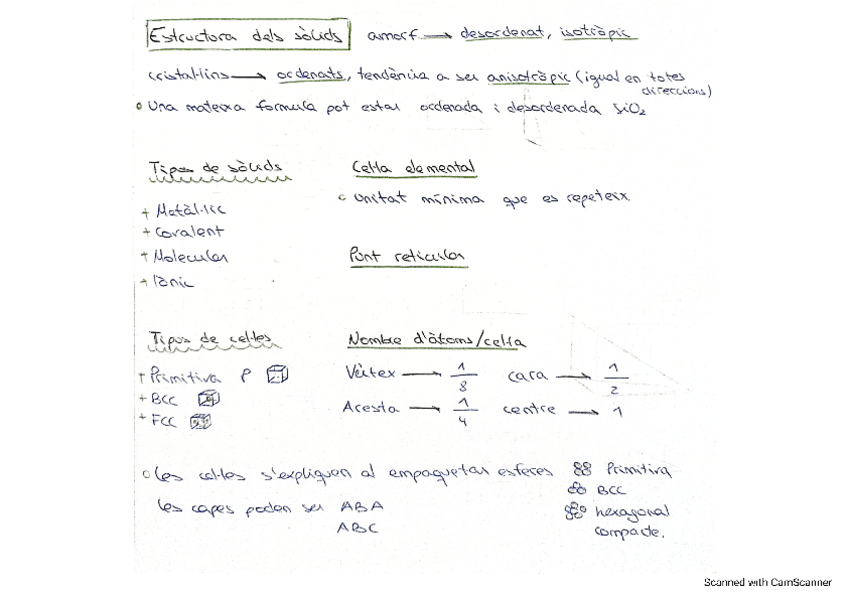 Estructora dels sòlids amorf → desordenat, isotròpic
cristal·lins → ordenats, tendència a ser anisotròpic (igual en totes direccions)
Una mateixa formula pot estar ordenada i desordenada SiO₂
Tipos de sòlids
+ Metàl·lic
+ Covalent
+ Molecular
+ Iònic
Cel·la elemental
Unitat mínima que es repeteix
Punt reticular
Tipus de cel·les
+ Primitiva P
+ BCC
+ FCC
Nombre d'àtoms/cel·la
Vèrtex → 1/8 cara → 1/2
Aresta → 1/4 centre → 1
Les cel·les s'expliquen al empaquetar esferes
Les capes poden ser ABA
ABC
Primitiva
BCC
hexagonal
compacte.
Scanned with CamScanner